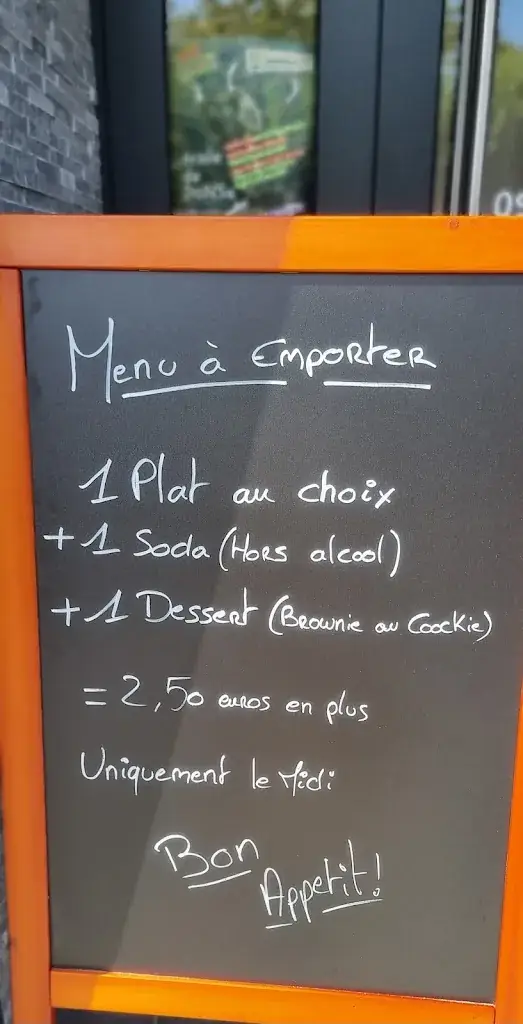 Menu à Emporter
1 Plat au choix
+ 1 Soda (Hors alcool)
+ 1 Dessert (Brownie ou Coockie)
= 2,50 euros en plus
Uniquement le Midi
Bon
Appetit!